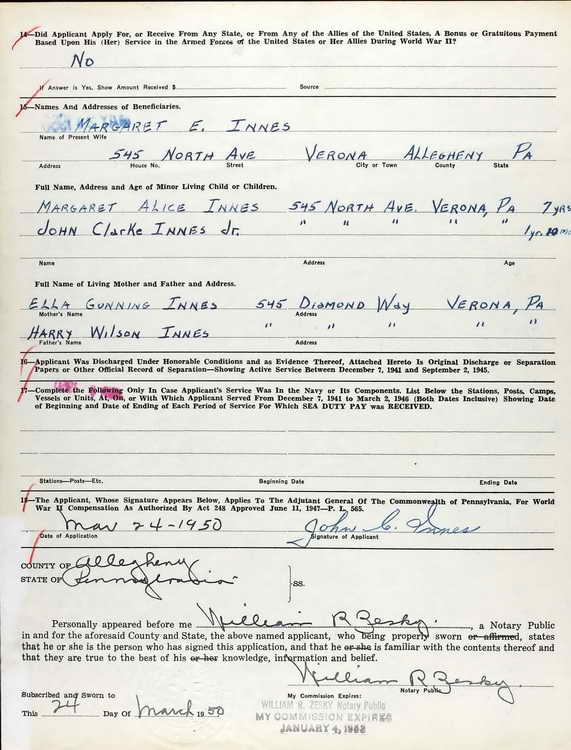 14—Did Applicant Apply For, or Receive From Any State, or From Any of the Allies of the United States, A Bonus or Gratuitous Payment
Based Upon His (Her) Service in the Armed Forces of the United States or Her Allies During World War II?
No
If Answer is Yes, Show Amount Received $ Source
15—Names And Addresses of Beneficiaries.
MARGARET E. INNES
Name of Present Wife
545 NORTH AVE VERONA ALLEGHENY PA
Address House No. Street City or Town County State
Full Name, Address and Age of Minor Living Child or Children.
MARGARET ALICE INNES 545 NORTH AVE. VERONA, PA 7 yrs
JOHN Clarke INNES Jr. " " " " " 1 yr. 10 mo.
Name Address Age
Full Name of Living Mother and Father and Address.
ELLA GUNNING INNES 545 DIAMOND WAY VERONA, PA
Mother's Name Address
HARRY WILSON INNES " " " " "
Father's Name Address
16—Applicant Was Discharged Under Honorable Conditions and as Evidence Thereof, Attached Hereto Is Original Discharge or Separation
Papers or Other Official Record of Separation—Showing Active Service Between December 7, 1941 and September 2, 1945.
17—Complete the Following Only In Case Applicant's Service Was In the Navy or Its Components. List Below the Stations, Posts, Camps,
Vessels or Units, At, On, or With Which Applicant Served From December 7, 1941 to March 2, 1946 (Both Dates Inclusive) Showing Date
of Beginning and Date of Ending of Each Period of Service For Which SEA DUTY PAY was RECEIVED.
Stations—Posts—Etc. Beginning Date Ending Date
18—The Applicant, Whose Signature Appears Below, Applies To The Adjutant General Of The Commonwealth of Pennsylvania, For World
War II Compensation As Authorized By Act 248 Approved June 11, 1947—P. L. 565.
Mar 24-1950 John C. Innes
Date of Application Signature of Applicant
COUNTY OF Allegheny
STATE OF Pennsylvania SS.
Personally appeared before me William R Zesky, a Notary Public
in and for the aforesaid County and State, the above named applicant, who being properly sworn or affirmed, states
that he or she is the person who has signed this application, and that he or she is familiar with the contents thereof and
that they are true to the best of his or her knowledge, information and belief.
William R Zesky.
Subscribed and Sworn to My Commission Expires: Notary Public
This 24 Day Of March 1950
WILLIAM R. ZESKY Notary Public
MY COMMISSION EXPIRES
JANUARY 4, 1952